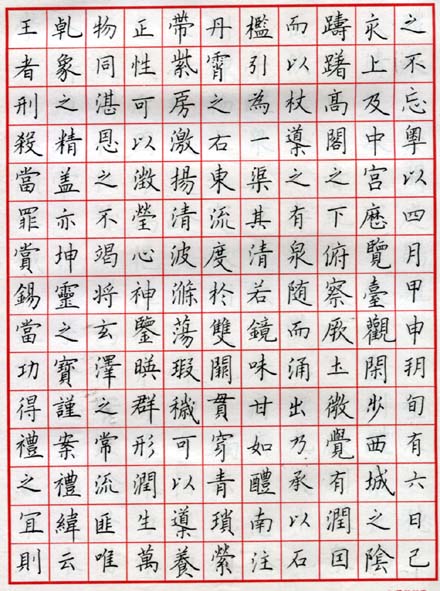 之不忘粵以四月甲申朔旬有六日己
亥上及中宮歷覽臺觀閑步西城之陰
躊躇高閣之下俯察厥土微覺有潤因
而以杖導之有泉随而涌出乃承以石
檻引為一渠其清若鏡味甘如醴南注
丹霄之右東流度於雙闕貫穿青瑣縈
帶紫房激揚清波滌蕩瑕穢可以導養
正性可以澂瑩心神鑒暎群形潤生萬
物同湛恩之不竭将玄澤之常流匪唯
乹象之精盖亦坤靈之寶謹案禮緯云
王者刑殺當罪賞錫當功得禮之宜則